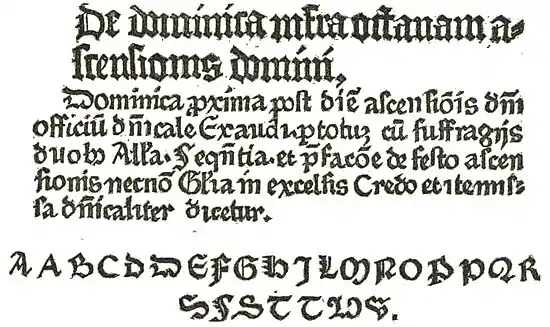 De dominica infra octauam a-
scensionis domini.
Dominica ꝓxima post diē ascensiōis dn̄i
officiū dn̄icale Exaudi ꝑ totuꝫ cū suffragijs
duobꝰ All'a. Seqn̄tia. et p̄facōe de festo ascen
sionis necnō Gl'ia in excelsis Credo et ite missa
sa dn̄icaliter dicetur.
A A B C D D D E F G H I L M N O P P Q R
S S S T T U S.